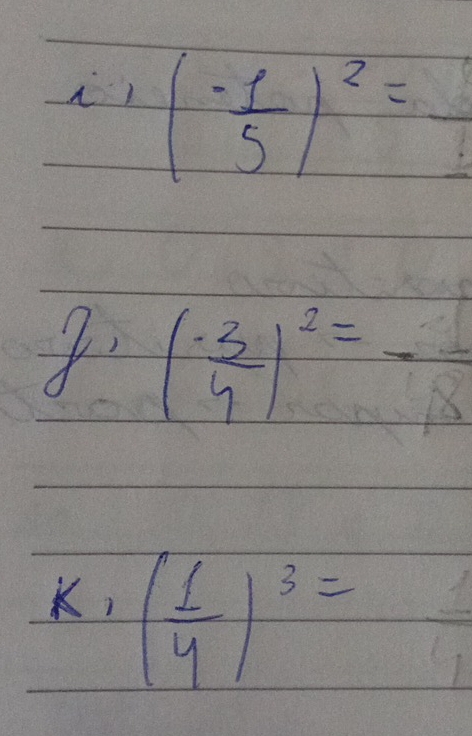 i, (-1/5)² =
j, (-3/4)² =
k, (1/4)³ =